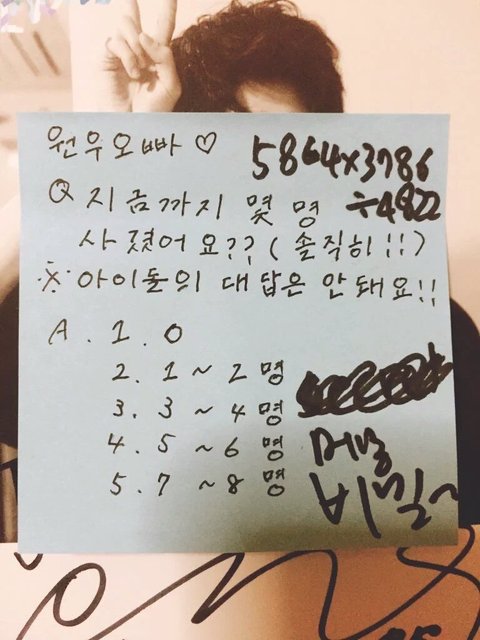 원우오빠♡
5864×3786
÷4822
Q 지금까지 몇 명
사겼어요??(솔직히!!)
※아이돌의 대답은 안돼요!!
A. 1. 0
2. 1~2명
3. 3~4명
4. 5~6명
5. 7~8명
비밀~